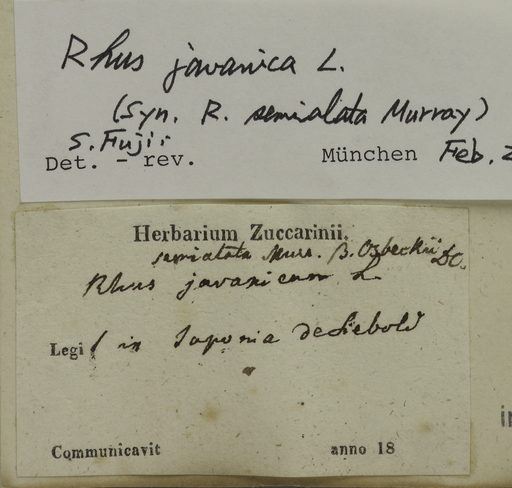 Rhus javanica L.
(Syn. R. semialata Murray)
S. Fujii
Det. - rev. München Feb. 2
Herbarium Zuccarinii.
semialata Murr. β. Osbeckii DC.
Rhus javanicum L
Legi t in Japonia de Siebold
Communicavit anno 18